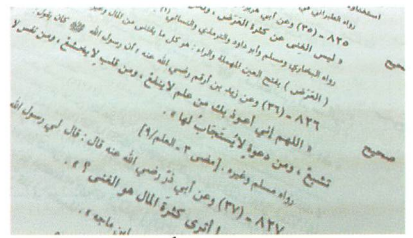 رواه الطبراني في
٨٢٥ - (٣٥) وعن أبي هريرة
« ليس الغنى عن كثرة العَرَض ،
رواه البخاري ومسلم وأبو داود والترمذي والنسائي
( العَرَض ) بفتح العين المهملة والراء : هو كل ما يقتنى من المال وغيره
صحيح
٨٢٦ - (٣٦) وعن زيد بن أرقم رضي الله عنه ؛ أن رسول الله ﷺ كان يقول :
« اللهم إني أعوذ بك من علم لا ينفع ، ومن قلب لا يخشع ، ومن نفس لا
تشبع ، ومن دعوة لا يستجاب لها » .
رواه مسلم وغيره . [مضى ٣ - العلم/٩]
صحيح
٨٢٧ - (٣٧) وعن أبي ذر رضي الله عنه قال : قال لي رسول الله
أترى كثرة المال هو الغنى ؟ » .
ابن ماجه